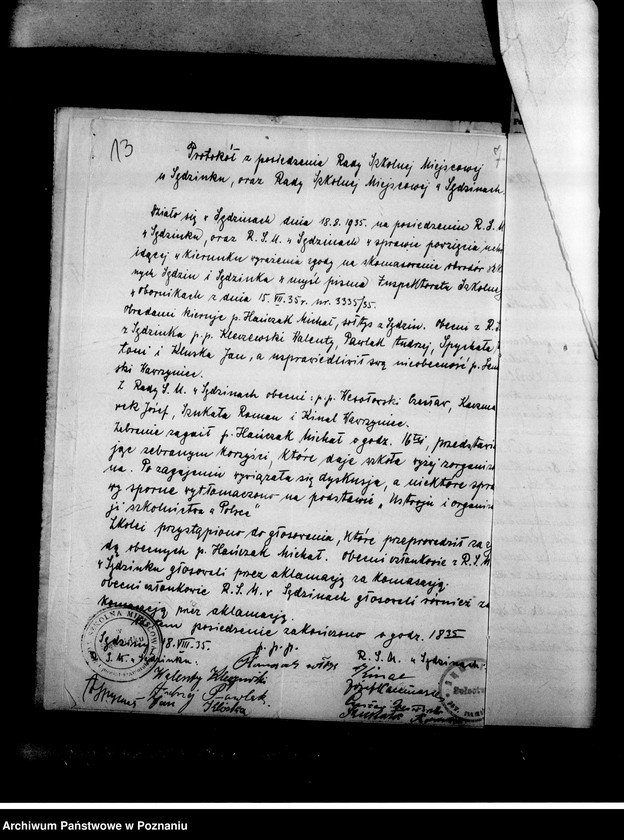 13
7
Protokół z posiedzenia Rady Szkolnej Miejscowej
w Sędzinku, oraz Rady Szkolnej Miejscowej w Sędzinach
Działo się w Sędzinach dnia 18.8.1935. na posiedzeniu R.S.M
w Sędzinku, oraz R.S.M. w Sędzinach w sprawie powzięcia uchw
w kierunku wyrażenia zgody na skomasowanie obwodów szk
nych Sędzin i Sędzinka w myśl pisma Inspektoratu Szkolneg
w Obornikach z dnia 15.VII.35r. nr. 3335/35.
Obradami kieruje p. Hańczak Michał, sołtys z Sędzin. Obecni z R.S
z Sędzinka p.p. Kleszewski Walenty, Pawlak Andrzej, Spychała
toni i Kluska Jan, a usprawiedliwił swą nieobecność p. Sem
ski Wawrzyniec.
Z Rady S.M. w Sędzinach obecni: p.p. Wesołowski Czesław, Kaczma
rek Józef, Szukała Roman i Kinal Wawrzyniec.
Zebranie zagaił p. Hańczak Michał o godz. 16tej, przedstawi
jąc zebranym korzyści, które daje szkoła wyżej zorganizo
na. Po zagajeniu wywiązała się dyskusja, a niektóre spra
wy sporne wytłomaczono na podstawie „Ustroju i organiza
ji szkolnictwa w Polsce"
Zkolei przystąpiono do głosowania, które przeprowadził za z
dą obecnych p. Hańczak Michał. Obecni członkowie z R.S.M
w Sędzinku głosowali przez aklamację za komasacją.
obecni członkowie R.S.M. w Sędzinach głosowali również za
komasacją przez aklamację.
posiedzenie zakończono o godz. 1835
Sędziny 18.VIII.35.
p.p.p.
S.M. w Sędzinku:
R.S.M. w Sędzinach:
sołtys
Walenty
Józef Kaczmarek
Andrzej Pawlak
Jan Kluska
SZKOLNA MIEJSCOWA
Archiwum Państwowe w Poznaniu